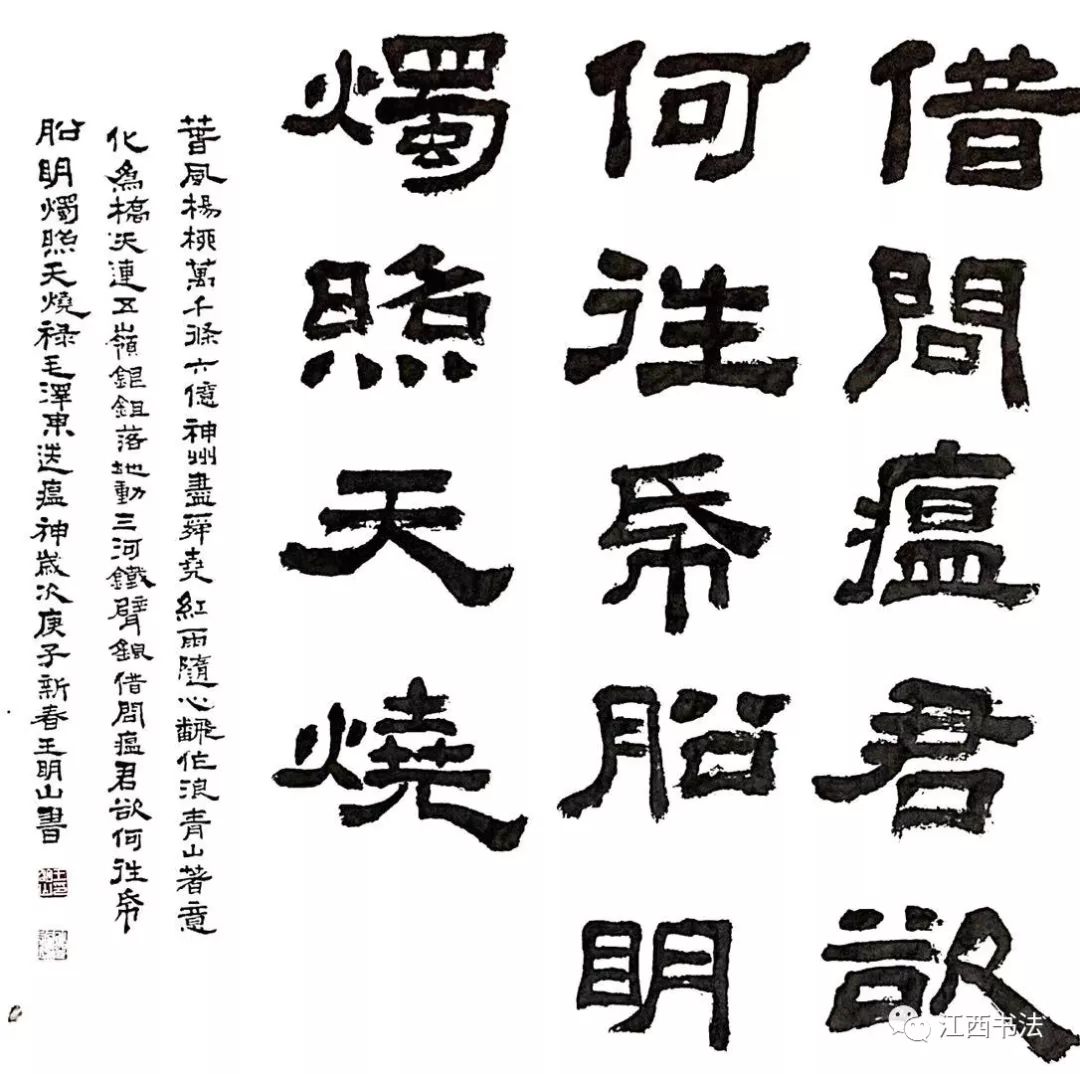 借問瘟君欲
何往帋船明
燭照天燒
春風楊柳萬千條六億神州盡舜堯紅雨隨心翻作浪青山著意
化為橋天連五嶺銀鉏落地動三河鐵臂借問瘟君欲何往帋
船明燭照天燒禄毛澤東送瘟神歲次庚子新春王明山書
江西书法